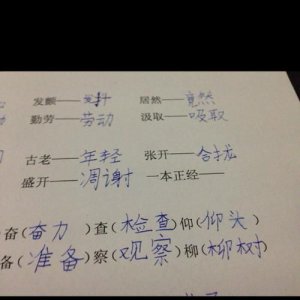 发颤——发抖 居然——竟然
勤劳——劳动 汲取——吸取
古老——年轻 张开——合拢
盛开——凋谢 一本正经——
奋(奋力) 查(检查) 仰(仰头)
备(准备) 察(观察) 柳(柳树)